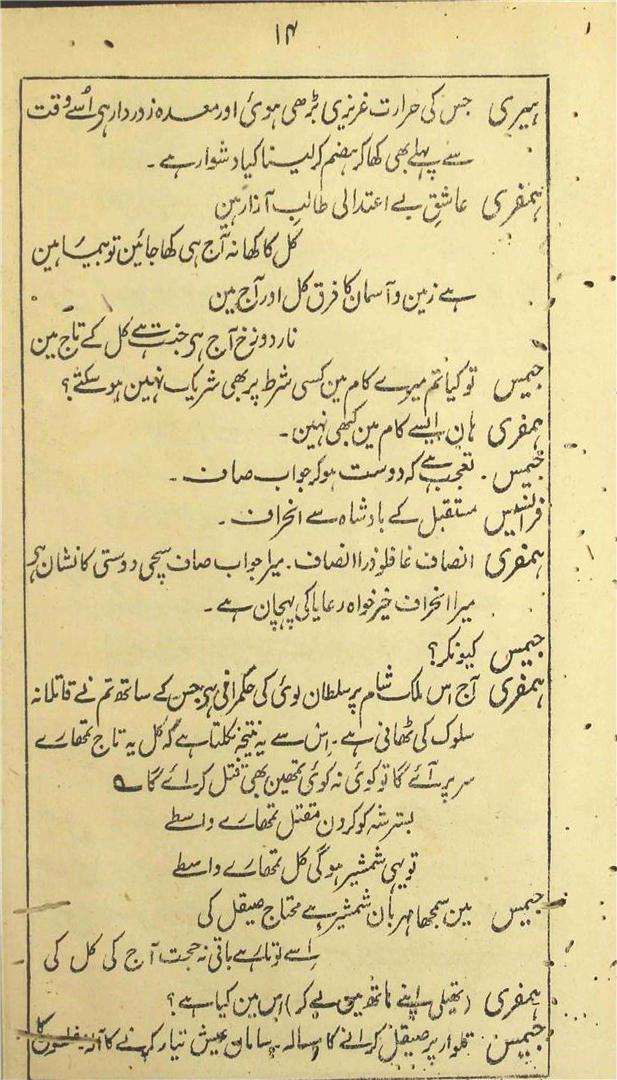 ۱۴
ہیری جس کی حرارت غریزی بڑھی ہوئی اور معدہ زوردار ہی اُسے وقت
سے پہلے بھی کھا کر ہضم کرلینا کیا دشوار ہے ۔
ہمفری عاشقِ بے اعتدالی طالبِ آزار ہین
کل کا کھانہ آج ہی کھا جائین تو بیمار ہین
ہے زمین و آسمان کا فرق کل اور آج مین
نارِ دوزخ آج ہی جنت ہے کل کے تاج مین
جیمس تو کیا تم میرے کام مین کسی شرط پر بھی شریک نہین ہوسکتے؟
ہمفری ہان ایسے کام مین کبھی نہین ۔
جیمس ۔ تعجب ہے کہ دوست ہو کر جواب صاف ۔
فرانسیس مستقبل کے بادشاہ سے انحراف ۔
ہمفری انصاف غافلو ذرا انصاف ۔ میرا جواب صاف سچی دوستی کا نشان ہی
میرا انحراف خیرخواہ رعایا کی پہچان ہے ۔
جیمس کیونکر؟
ہمفری آج اس ملک شام پر سلطان لوئی کی حکمرانی ہی جن کے ساتھ تم نے قاتلانہ
سلوک کی ٹھانی ہے ۔ اِس سے یہ نتیجہ نکلتا ہے کہ کل یہ تاج تمھارے
سر پر آئے گا تو کوئی نہ کوئی تمھین بھی قتل کرائے گا ؎
بسترِ شہ کو کردن مقتل تمھارے واسطے
تو یہی شمشیر ہوگی کل تمھارے واسطے
جیمس مین سمجھا مہربان شمشیر ہے محتاج صیقل کی
اِسے لو تا رہے باقی نہ حجت آج کی کل کی
ہمفری (تھیلی اپنے ہاتھ مین لے کر) اِس مین کیا ہے؟
جیمس تلوار پر صیقل کرانے کا مسالہ ۔ سامان عیش تیار کرنے کا آلہ